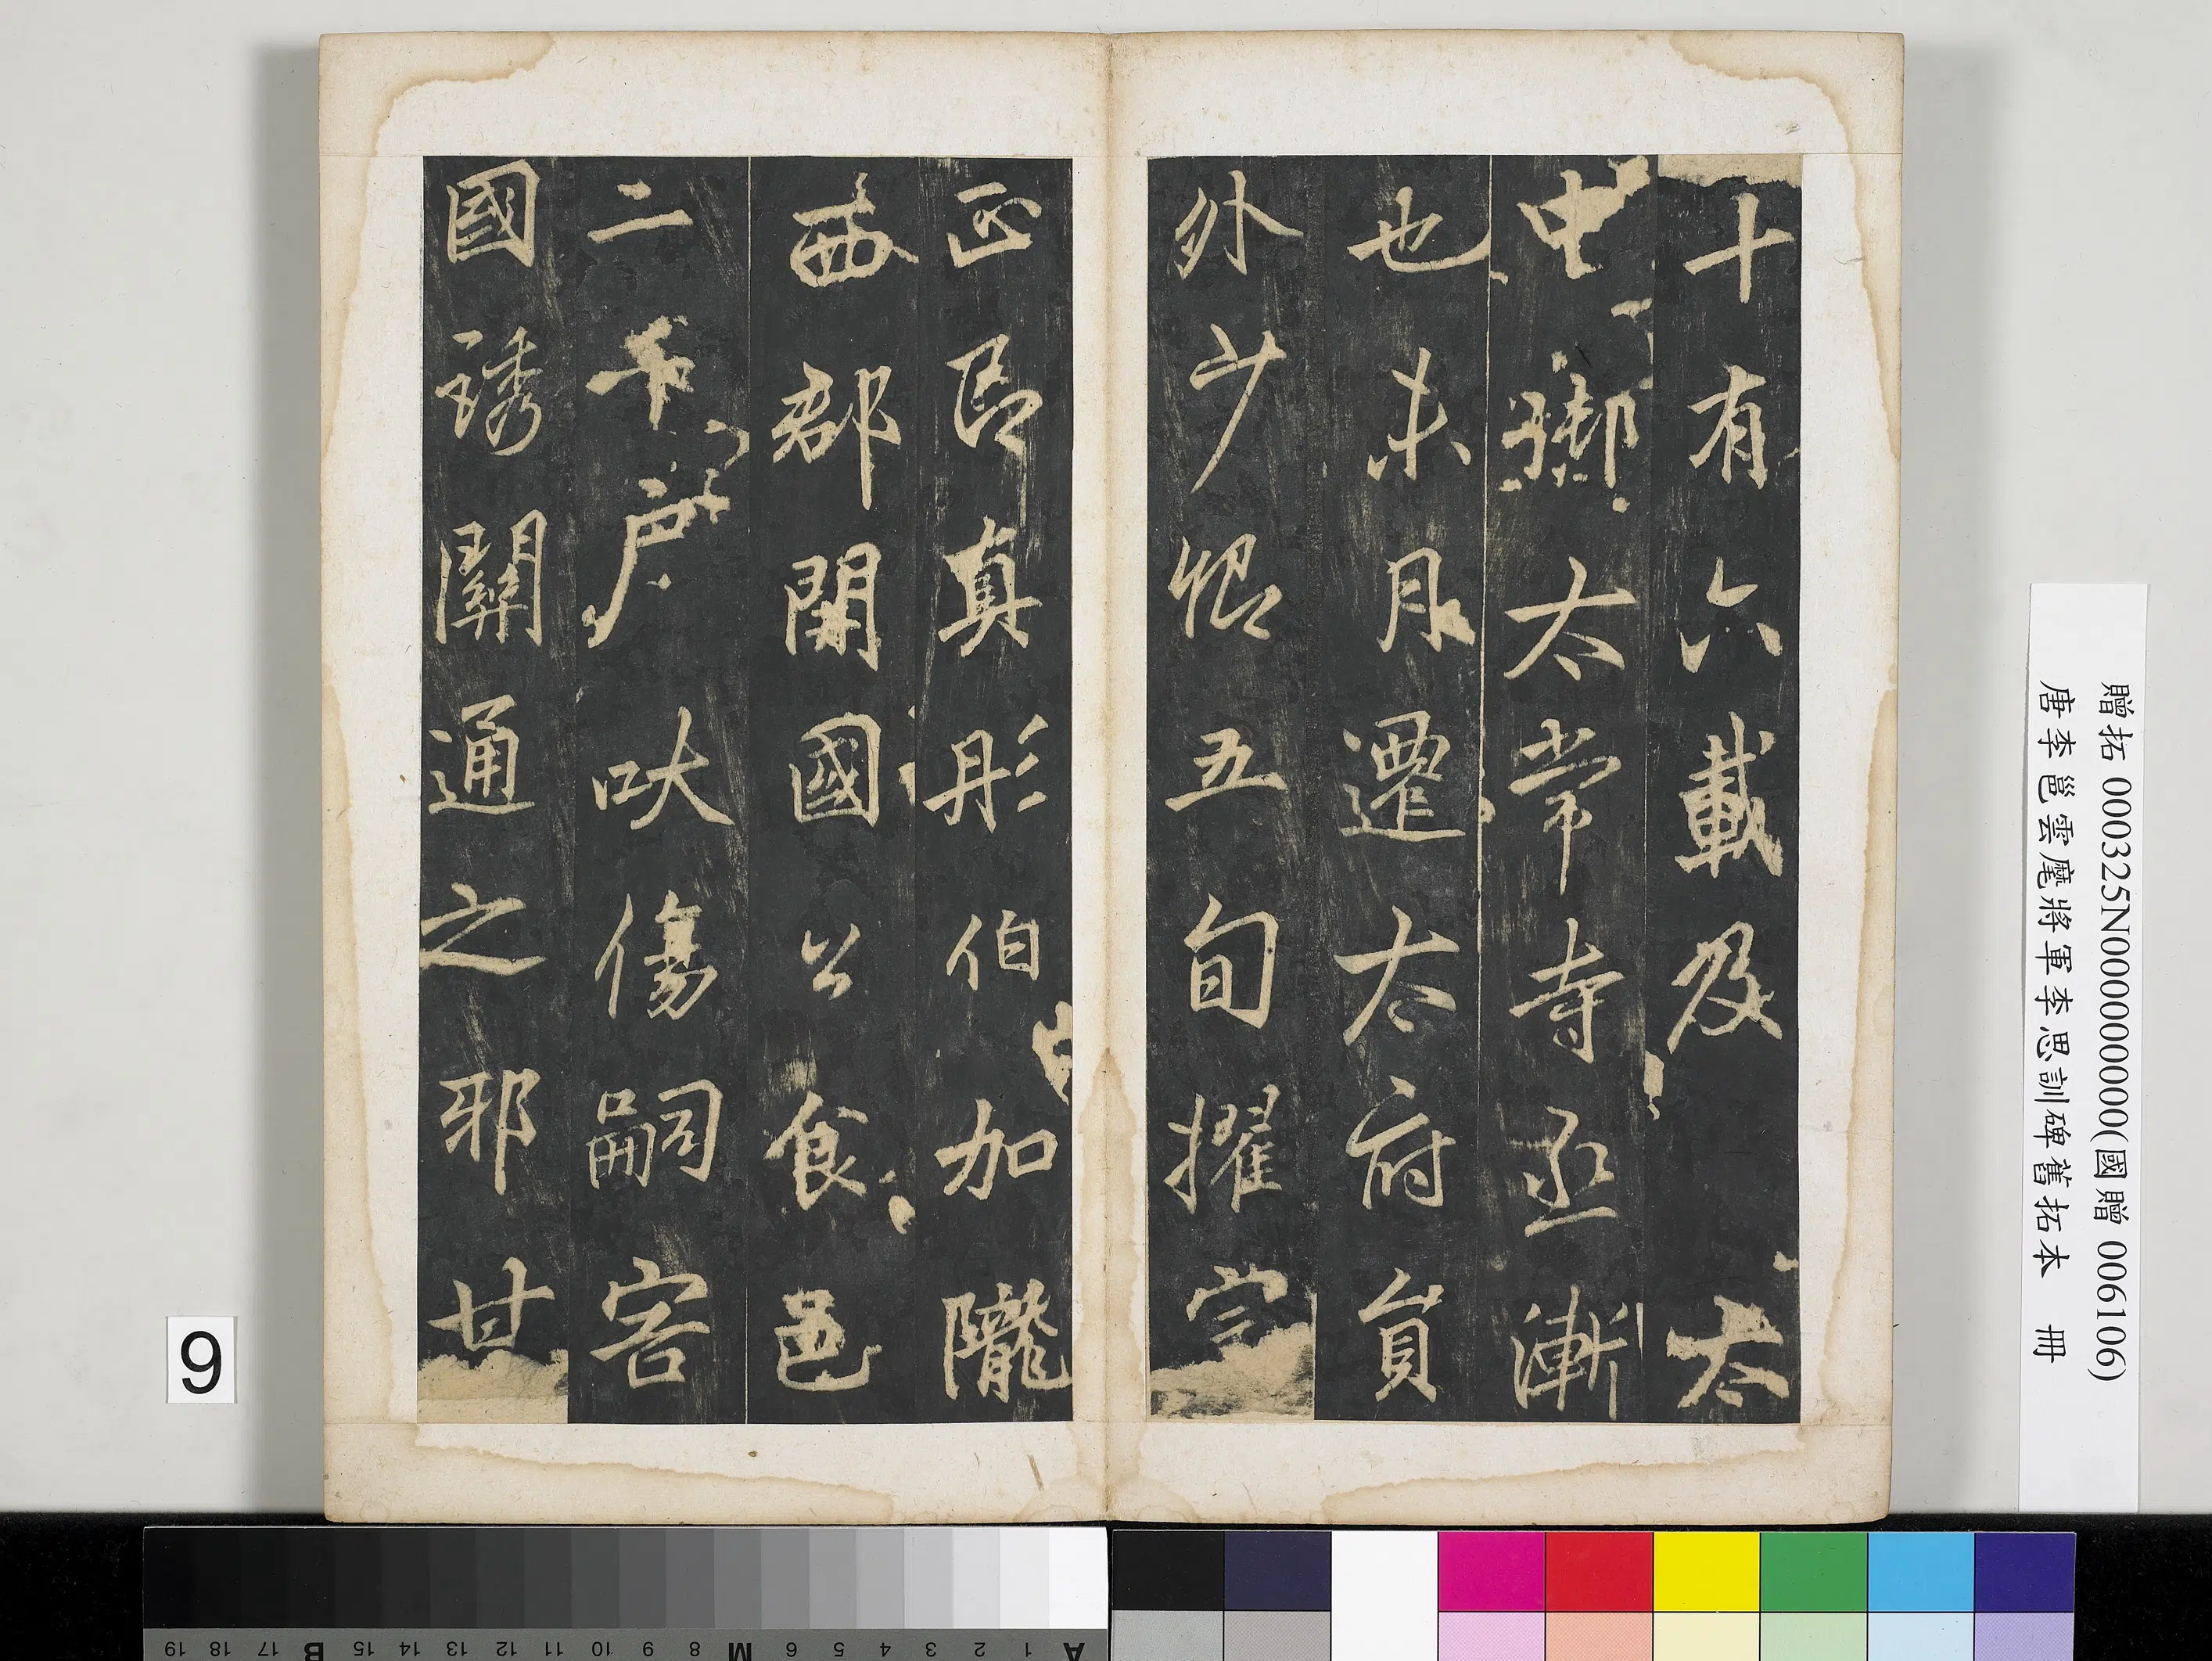 十有六載及太
中御太常寺丞漸
也未月遷太府員
外少卿五旬擢宗
正即真彤伯加隴
西郡開國公食邑
二千戶吠傷嗣害
國誘關通之邪甘
贈拓 000325N000000000(國贈 006106)
唐李邕雲麾將軍李思訓碑舊拓本 冊
9
A 1 2 3 4 5 6 M 8 9 10 11 12 13 14 15 B 17 18 19